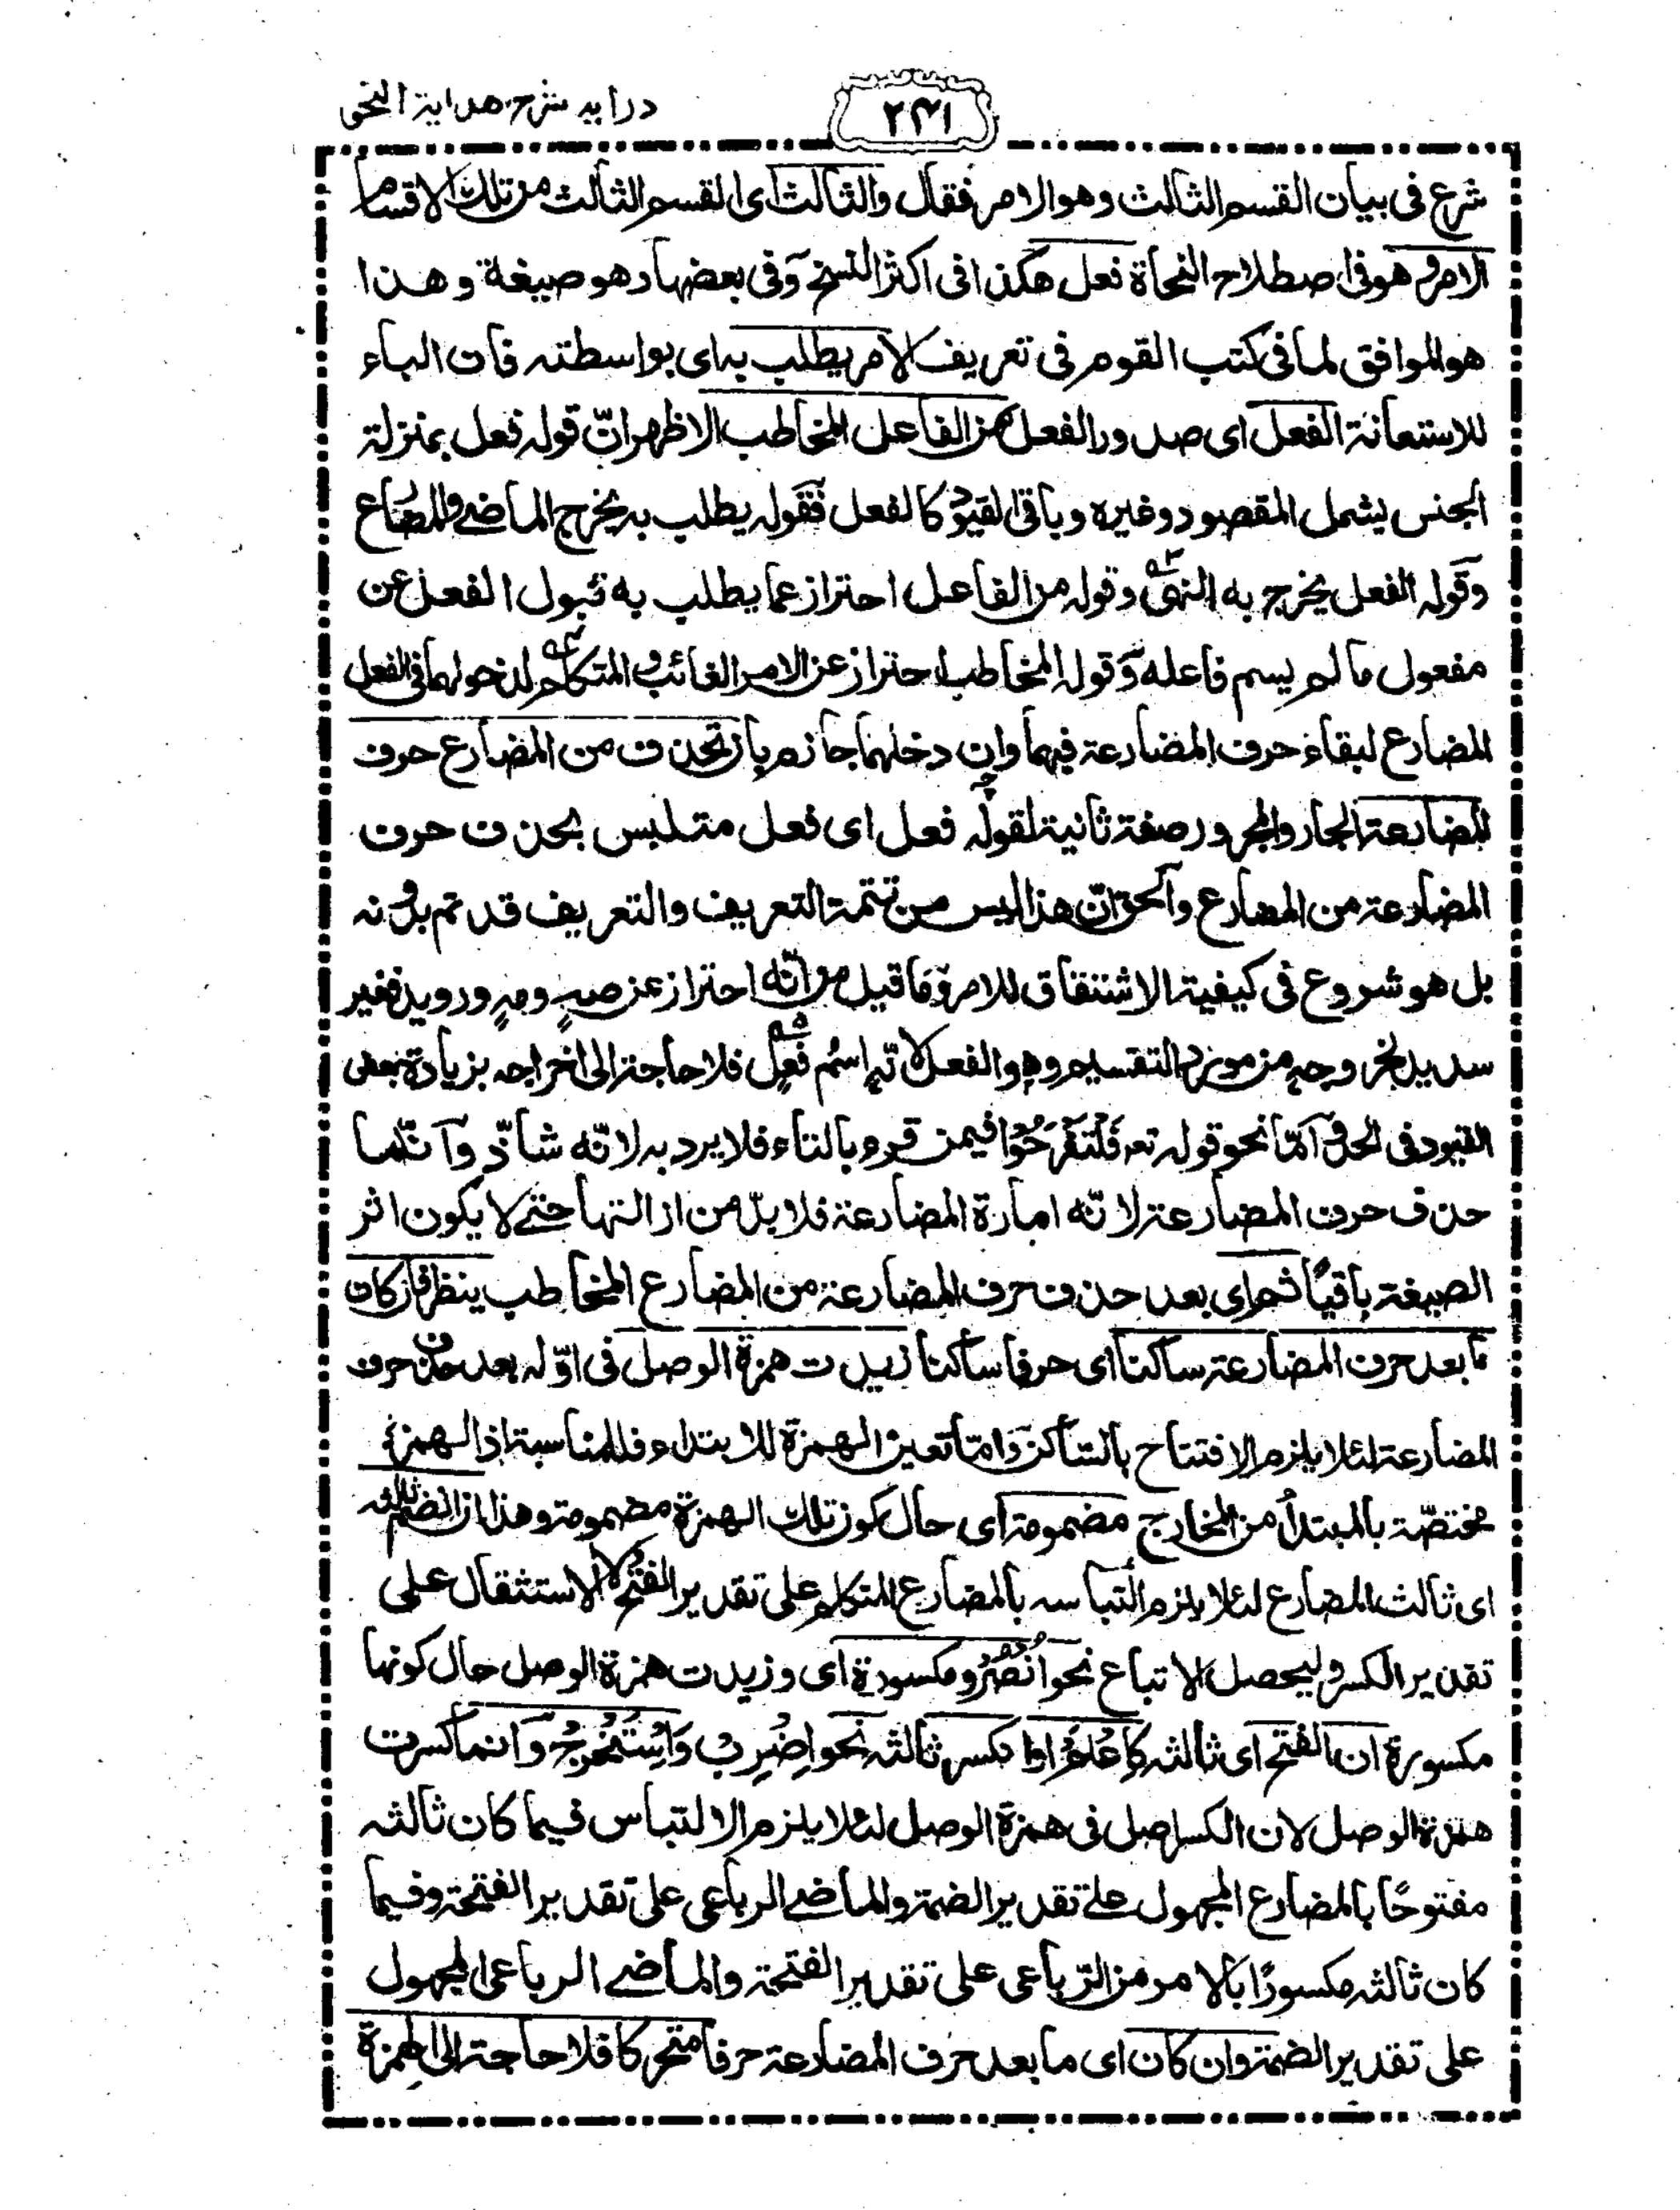 درایہ شرح ھدایۃ النحو
۲۴۱
شرع فی بیان القسم الثالث وھو الامر فقال والثالث ای القسم الثالث من تلک الاقسام
الامر و ھو فی اصطلاح النحاۃ فعل ھکذا فی اکثر النسخ وفی بعضہا وھو صیغۃ وھذا
ھو الموافق لما فی کتب القوم فی تعریف الامر یطلب بہ ای بواسطتہ فان الباء
للاستعانۃ الفعل ای صدور الفعل من الفاعل المخاطب الاظہر انّ قولہ فعل بمنزلۃ
الجنس یشمل المقصود وغیرہ وباقی القیود کالفصل فقولہ یطلب بہ یخرج الماضی والمضارع
وقولہ الفعل یخرج بہ النہی وقولہ من الفاعل احتراز عما یطلب بہ قبول الفعل عن
مفعول ما لم یسم فاعلہ وقولہ المخاطب احتراز عن الامر الغائب والمتکلم لدخولہما فی الفعل
المضارع لبقاء حرف المضارعۃ فیہما وان دخلہما جازم بان تحذف من المضارع حرف
المضارعۃ الجار والمجرور صفۃ ثانیۃ لقولہ فعل ای فعل متلبس بحذف حرف
المضارعۃ من المضارع والحق انّ ھذا لیس من تتمۃ التعریف والتعریف قد تم بدونہ
بل ھو شروع فی کیفیۃ الاشتقاق للامر وما قیل من انّہ احتراز عن صہٍ ومہٍ ورویدَ فغیر
سدید لخروجہ من مورد التقسیم وھو الفعل لانّہ اسمُ فعلٍ فلا حاجۃ الی اخراجہ بزیادۃ بعض
القیود فی الحد وامّا نحو قولہ تعہ فَلْتَفْرَحُوْا فیمن قرء بالتاء فلا یرد بہ لانّہ شاذّ وانّما
حذف حرف المضارعۃ لانّہ امارۃ المضارعۃ فلا بدّ من ازالتہا حتی لا یکون اثر
الصیغۃ باقیًا ثم ای بعد حذف حرف المضارعۃ من المضارع المخاطب ینظر فان کان
ما بعد حرف المضارعۃ ساکنا ای حرفا ساکنا زیدت ھمزۃ الوصل فی اوّلہ بعد حذف حرف
المضارعۃ لئلا یلزم الافتتاح بالساکن وامّا تعین الہمزۃ للابتداء فللمناسبۃ اذ الہمزۃ
مختصّۃ بالمبتدأ من المخارج مضمومۃ ای حال کون تلک الہمزۃ مضمومۃ وھذا ان انضم ثالثہ
ای ثالث المضارع لئلا یلزم التباسہ بالمضارع المتکلم علی تقدیر الفتح والاستثقال علی
تقدیر الکسر ولیحصل الاتباع نحو اُنْصُرْ ومکسورۃ ای وزیدت ھمزۃ الوصل حال کونہا
مکسورۃ ان انفتح ای ثالثہ کاِعْلَمْ او انکسر ثالثہ نحو اِضْرِبْ وَاسْتَخْرِجْ وانما کسرت
ھمزۃ الوصل لان الکسر اصل فی ھمزۃ الوصل لئلا یلزم الالتباس فیما کان ثالثہ
مفتوحًا بالمضارع المجہول علی تقدیر الضمۃ والماضی الرباعی علی تقدیر الفتحۃ وفیما
کان ثالثہ مکسورًا بالامر من الرّباعی علی تقدیر الفتحۃ والماضی الرباعی المجہول
علی تقدیر الضمۃ وان کان ای ما بعد حرف المضارعۃ حرفا متحرکا فلا حاجۃ الی الھمزۃ